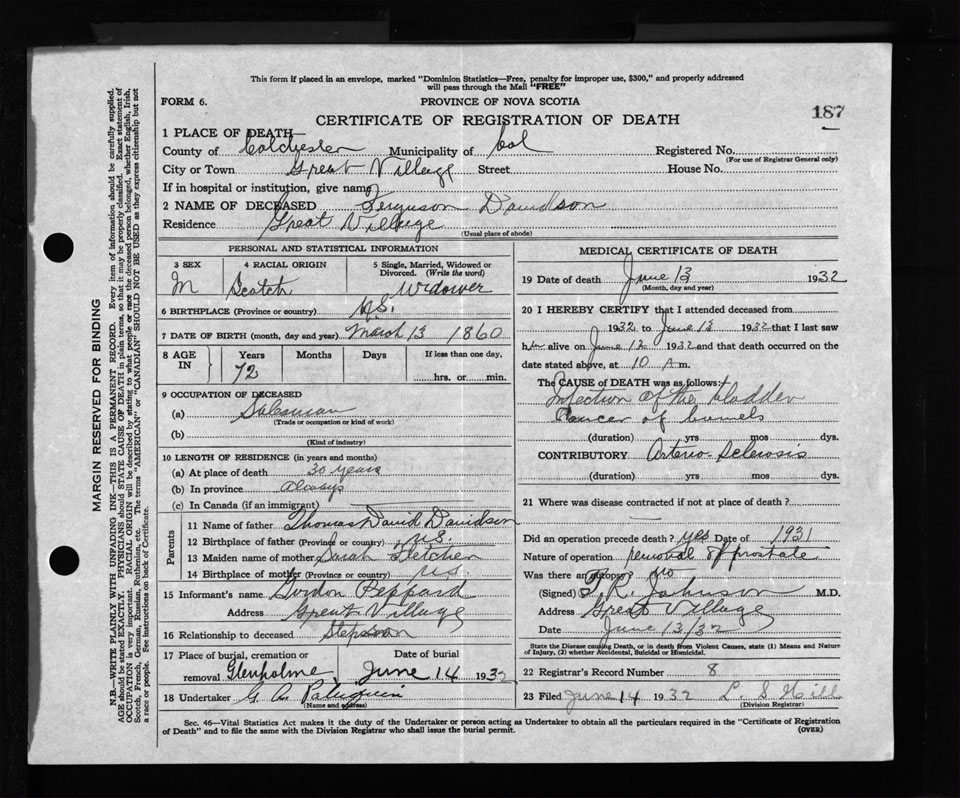 This form if placed in an envelope, marked "Dominion Statistics—Free, penalty for improper use, $300," and properly addressed
will pass through the Mail "FREE"
FORM 6.
PROVINCE OF NOVA SCOTIA
187
CERTIFICATE OF REGISTRATION OF DEATH
1 PLACE OF DEATH
County of Colchester Municipality of Col Registered No.
(For use of Registrar General only)
City or Town Great Village Street House No.
If in hospital or institution, give name
2 NAME OF DECEASED Ferguson Davidson
Residence Great Village
(Usual place of abode)
PERSONAL AND STATISTICAL INFORMATION
3 SEX 4 RACIAL ORIGIN 5 Single, Married, Widowed or
Divorced. (Write the word)
M Scotch Widower
6 BIRTHPLACE (Province or country) N.S.
7 DATE OF BIRTH (month, day and year) March 13 1860
8 AGE IN Years Months Days If less than one day,
72 hrs. or min.
9 OCCUPATION OF DECEASED
(a) Salesman
(Trade or occupation or kind of work)
(b)
(Kind of industry)
10 LENGTH OF RESIDENCE (in years and months)
(a) At place of death 30 years
(b) In province always
(c) In Canada (if an immigrant)
Parents
11 Name of father Thomas David Davidson
12 Birthplace of father (Province or country) N.S.
13 Maiden name of mother Sarah Fletcher
14 Birthplace of mother (Province or country) N.S.
15 Informant's name Gordon Peppard
Address Great Village
16 Relationship to deceased Stepson
17 Place of burial, cremation or Date of burial
removal Glenholme June 14 1932
18 Undertaker G. A.
(Name and address)
MEDICAL CERTIFICATE OF DEATH
19 Date of death June 13 1932
(Month, day and year)
20 I HEREBY CERTIFY that I attended deceased from
1932 to June 13 1932 that I last saw
him alive on June 12 1932 and that death occurred on the
date stated above, at 10 A m.
The CAUSE OF DEATH was as follows:
Infection of the bladder
Cancer of bowels
(duration) yrs mos dys.
CONTRIBUTORY Arterio-Sclerosis
(duration) yrs mos dys.
21 Where was disease contracted if not at place of death?
Did an operation precede death? yes Date of 1931
Nature of operation removal of prostate
Was there an autopsy? no
(Signed) T. R. Johnson M.D.
Address Great Village
Date June 13/32
State the Disease causing Death, or in death from Violent Causes, state (1) Means and Nature
of Injury, (2) whether Accidental, Suicidal or Homicidal.
22 Registrar's Record Number 8
23 Filed June 14 1932 L. S Hill
(Division Registrar)
Sec. 46—Vital Statistics Act makes it the duty of the Undertaker or person acting as Undertaker to obtain all the particulars required in the "Certificate of Registration
of Death" and to file the same with the Division Registrar who shall issue the burial permit.
(OVER)
MARGIN RESERVED FOR BINDING
N.B.—WRITE PLAINLY WITH UNFADING INK—THIS IS A PERMANENT RECORD. Every item of information should be carefully supplied.
AGE should be stated EXACTLY. PHYSICIANS should STATE CAUSE OF DEATH in plain terms, so that it may be properly classified. Exact statement of
OCCUPATION is very important. RACIAL ORIGIN will be described by stating to what people or race the deceased person belonged, whether English, Irish,
Scotch, French, German, Russian, Ruthenian, etc. The terms "AMERICAN" or "CANADIAN" SHOULD NOT BE USED as they express citizenship but not
a race or people. See instructions on back of Certificate.